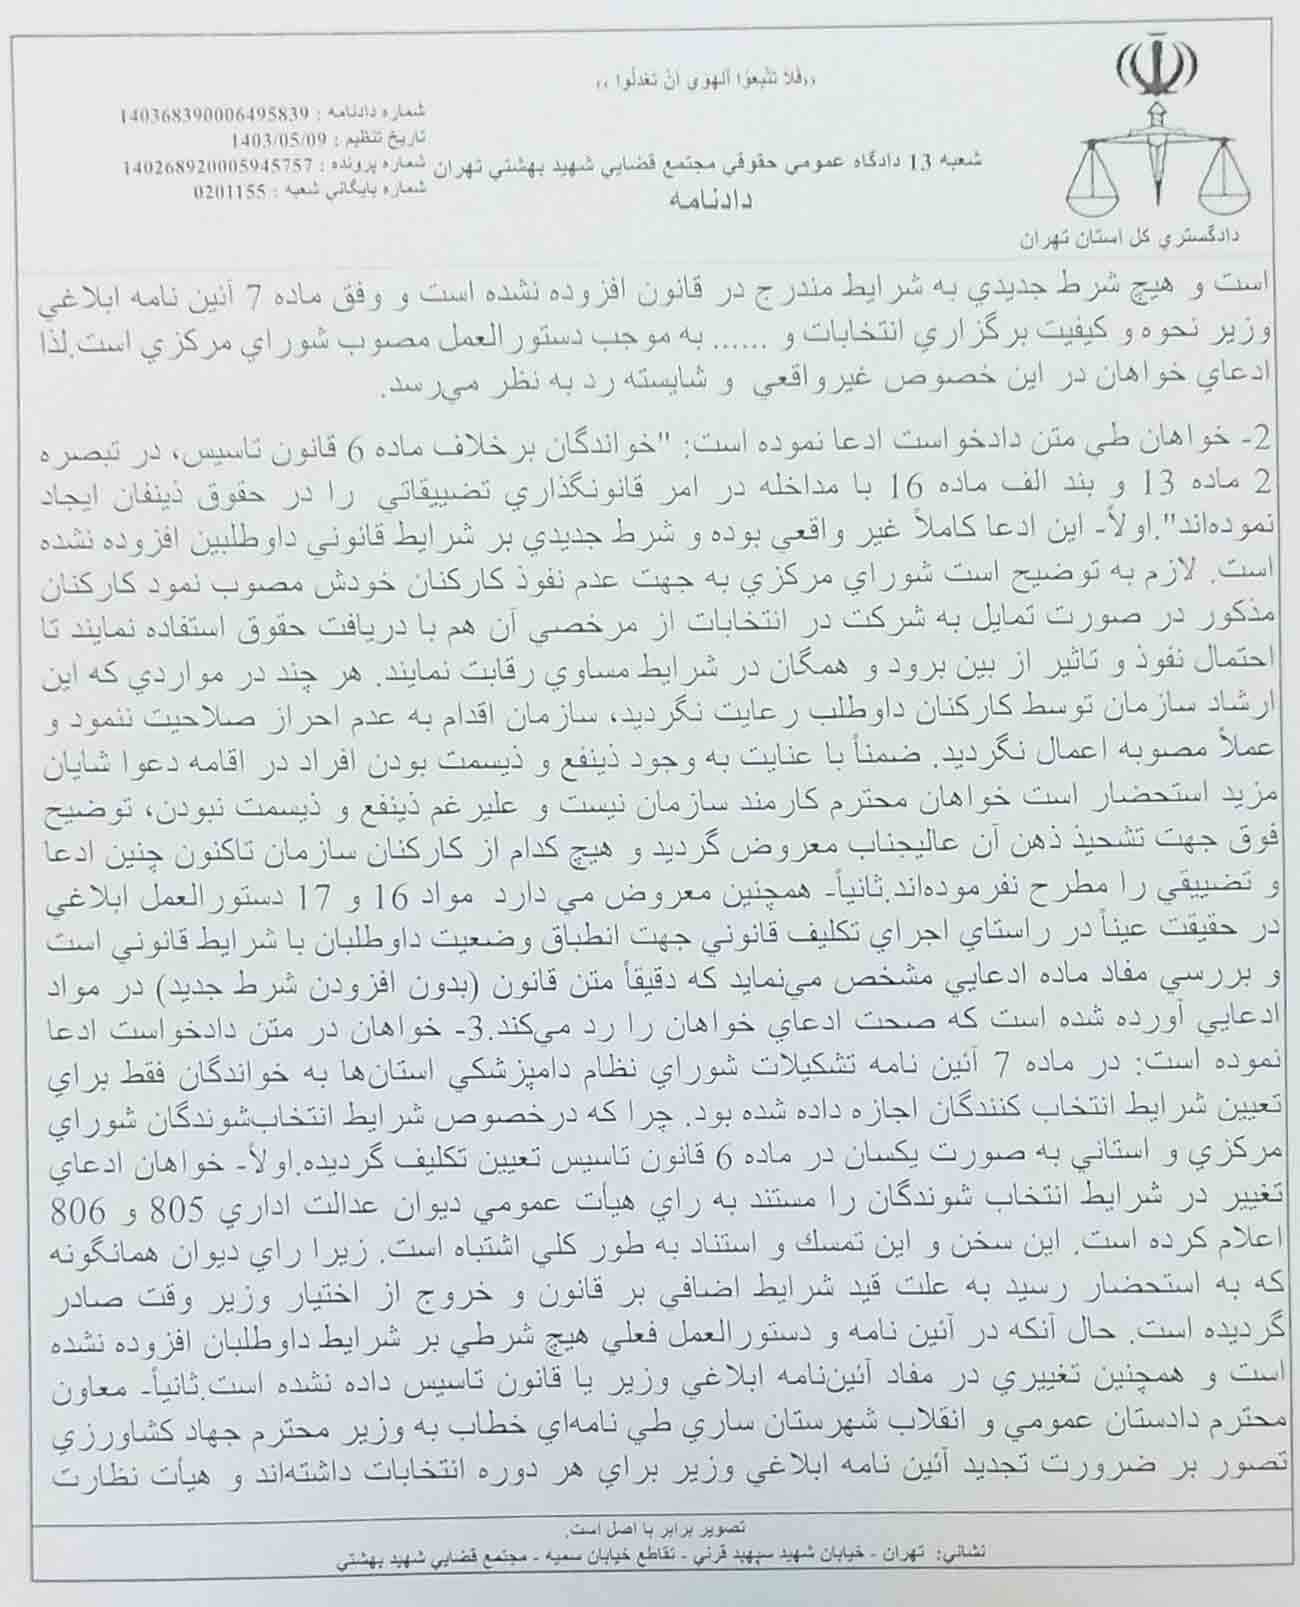 ،،فَلا تَتَّبِعُوا الْهَوي اَنْ تَعْدِلُوا ،،
شماره دادنامه : 140368390006495839
تاریخ تنظیم : 1403/05/09
شماره پرونده : 140268920005945757
شماره بایگاني شعبه : 0201155
شعبه 13 دادگاه عمومي حقوقي مجتمع قضايي شهيد بهشتي تهران
دادنامه
دادگستري كل استان تهران
است و هيچ شرط جديدي به شرايط مندرج در قانون افزوده نشده است و وفق ماده 7 آئين نامه ابلاغي
وزير نحوه و كيفيت برگزاري انتخابات و ...... به موجب دستورالعمل مصوب شوراي مركزي است.لذا
ادعاي خواهان در اين خصوص غيرواقعي و شايسته رد به نظر مي‌رسد.
2- خواهان طي متن دادخواست ادعا نموده است: "خواندگان برخلاف ماده 6 قانون تاسيس، در تبصره
2 ماده 13 و بند الف ماده 16 با مداخله در امر قانونگذاري تضييقاتي را در حقوق ذينفان ايجاد
نموده‌اند".اولاً- اين ادعا كاملاً غير واقعي بوده و شرط جديدي بر شرايط قانوني داوطلبين افزوده نشده
است. لازم به توضيح است شوراي مركزي به جهت عدم نفوذ كاركنان خودش مصوب نمود كاركنان
مذكور در صورت تمايل به شركت در انتخابات از مرخصي آن هم با دريافت حقوق استفاده نمايند تا
احتمال نفوذ و تاثير از بين برود و همگان در شرايط مساوي رقابت نمايند. هر چند در مواردي كه اين
ارشاد سازمان توسط كاركنان داوطلب رعايت نگرديد، سازمان اقدام به عدم احراز صلاحيت ننمود و
عملاً مصوبه اعمال نگرديد. ضمناً با عنايت به وجود ذينفع و ذيسمت بودن افراد در اقامه دعوا شايان
مزيد استحضار است خواهان محترم كارمند سازمان نيست و عليرغم ذينفع و ذيسمت نبودن، توضيح
فوق جهت تشحيذ ذهن آن عاليجناب معروض گرديد و هيچ كدام از كاركنان سازمان تاكنون چنين ادعا
و تضييقي را مطرح نفرموده‌اند.ثانياً- همچنين معروض مي دارد مواد 16 و 17 دستورالعمل ابلاغي
در حقيقت عيناً در راستاي اجراي تكليف قانوني جهت انطباق وضعيت داوطلبان با شرايط قانوني است
و بررسي مفاد ماده ادعايي مشخص مي‌نمايد كه دقيقاً متن قانون (بدون افزودن شرط جديد) در مواد
ادعايي آورده شده است كه صحت ادعاي خواهان را رد مي‌كند.3- خواهان در متن دادخواست ادعا
نموده است: در ماده 7 آئين نامه تشكيلات شوراي نظام دامپزشكي استان‌ها به خواندگان فقط براي
تعيين شرايط انتخاب كنندگان اجازه داده شده بود. چرا كه درخصوص شرايط انتخاب‌شوندگان شوراي
مركزي و استاني به صورت يكسان در ماده 6 قانون تاسيس تعيين تكليف گرديده.اولاً- خواهان ادعاي
تغيير در شرايط انتخاب شوندگان را مستند به راي هيأت عمومي ديوان عدالت اداري 805 و 806
اعلام كرده است. اين سخن و اين تمسك و استناد به طور كلي اشتباه است. زيرا راي ديوان همانگونه
كه به استحضار رسيد به علت قيد شرايط اضافي بر قانون و خروج از اختيار وزير وقت صادر
گرديده است. حال آنكه در آئين نامه و دستورالعمل فعلي هيچ شرطي بر شرايط داوطلبان افزوده نشده
است و همچنين تغييري در مفاد آئين‌نامه ابلاغي وزير يا قانون تاسيس داده نشده است.ثانياً- معاون
محترم دادستان عمومي و انقلاب شهرستان ساري طي نامه‌اي خطاب به وزير محترم جهاد كشاورزي
تصور بر ضرورت تجديد آئين نامه ابلاغي وزير براي هر دوره انتخابات داشته‌اند و هيأت نظارت
تصوير برابر با اصل است.
نشاني: تهران - خيابان شهيد سپهبد قرني - تقاطع خيابان سميه - مجتمع قضايي شهيد بهشتي